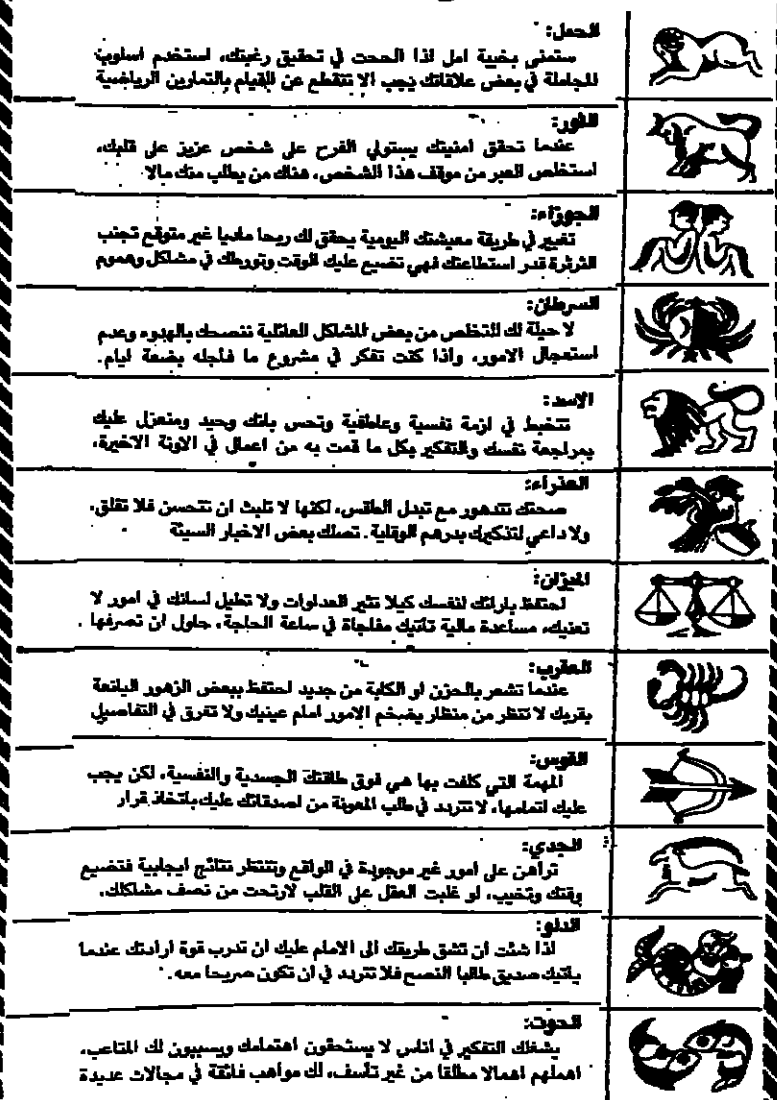 الحمل:
ستمنى بخيبة امل اذا الححت في تحقيق رغبتك، استخدم اسلوب
المجاملة في بعض علاقاتك يجب الا تتقطع عن القيام بالتمارين الرياضية
الثور:
عندما تحقق امنيتك يستولي الفرح على شخص عزيز على قلبك،
استخلص العبر من موقف هذا الشخص، هناك من يطلب منك مالا
الجوزاء:
تغيير في طريقة معيشتك اليومية يحقق لك ربحا ماديا غير متوقع تجنب
الثرثرة قدر استطاعتك فهي تضيع عليك الوقت وتورطك في مشاكل وهموم
السرطان:
لا حيلة لك للتخلص من بعض المشاكل العائلية ننصحك بالهدوء وعدم
استعجال الامور، واذا كنت تفكر في مشروع ما فاجله بضعة ايام.
الاسد:
تتخبط في ازمة نفسية وعاطفية وتحس بانك وحيد ومنعزل عليك
بمراجعة نفسك والتفكير بكل ما قمت به من اعمال في الاونة الاخيرة،
العذراء:
صحتك تتدهور مع تبدل الطقس، لكنها لا تلبث ان تتحسن فلا تقلق،
ولا داعي لتذكيرك بدرهم الوقاية. تصلك بعض الاخبار السيئة
الميزان:
احتفظ بارائك لنفسك كيلا تثير العداوات ولا تطيل لسانك في امور لا
تعنيك، مساعدة مالية تاتيك مفاجاة في ساعة الحاجة، حاول ان تصرفها .
العقرب:
عندما تشعر بالحزن او الكابة من جديد احتفظ ببعض الزهور اليانعة
بقربك لا تنظر من منظار يضخم الامور امام عينيك ولا تغرق في التفاصيل
القوس:
المهمة التي كلفت بها هي فوق طاقتك الجسدية والنفسية، لكن يجب
عليك اتمامها، لا تتردد في طلب المعونة من اصدقائك عليك باتخاذ قرار
الجدي:
تراهن على امور غير موجودة في الواقع وتنتظر نتائج ايجابية فتضيع
وقتك وتخيب، لو غلبت العقل على القلب لارتحت من نصف مشاكلك.
الدلو:
اذا شئت ان تشق طريقك الى الامام عليك ان تدرب قوة ارادتك عندما
ياتيك صديق طالبا النصح فلا تتردد في ان تكون صريحا معه.
الحوت:
يشغلك التفكير في اناس لا يستحقون اهتمامك ويسببون لك المتاعب،
اهملهم اهمالا مطلقا من غير تأسف، لك مواهب فائقة في مجالات عديدة